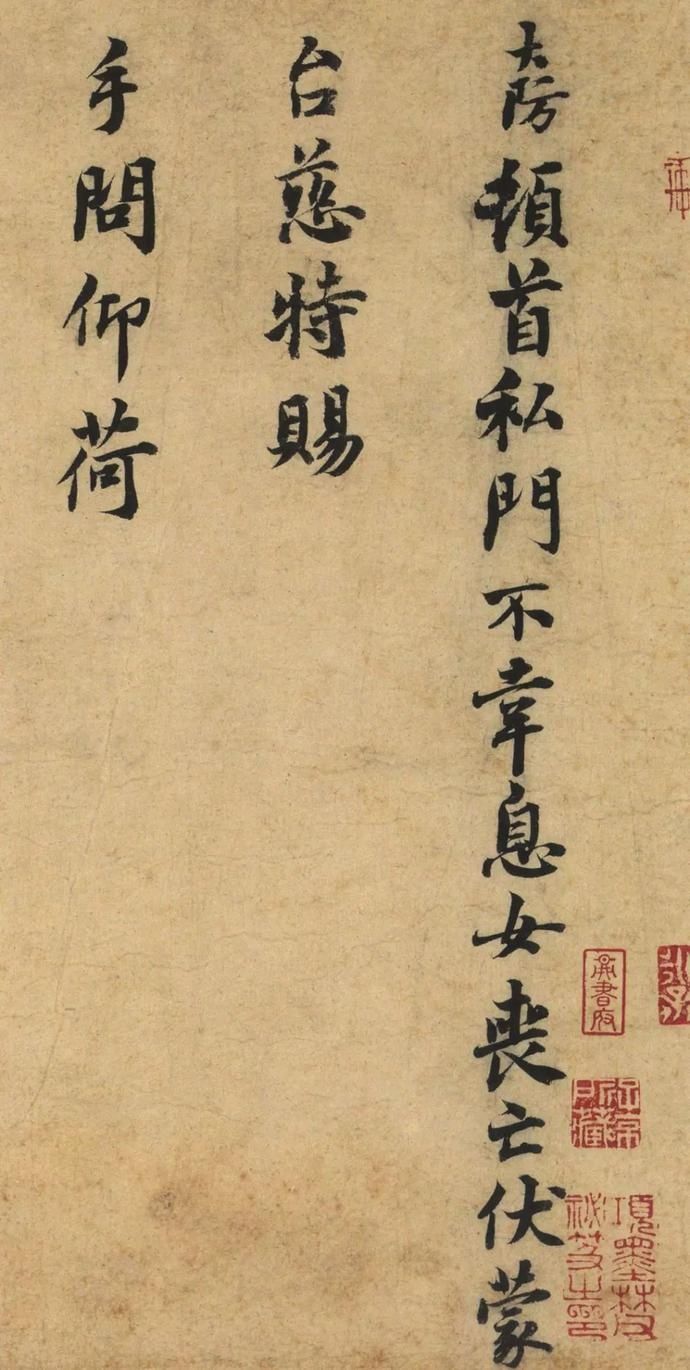 大防頓首私門不幸息女喪亡伏蒙
台慈特賜
手問仰荷
項墨林父
秘笈之印